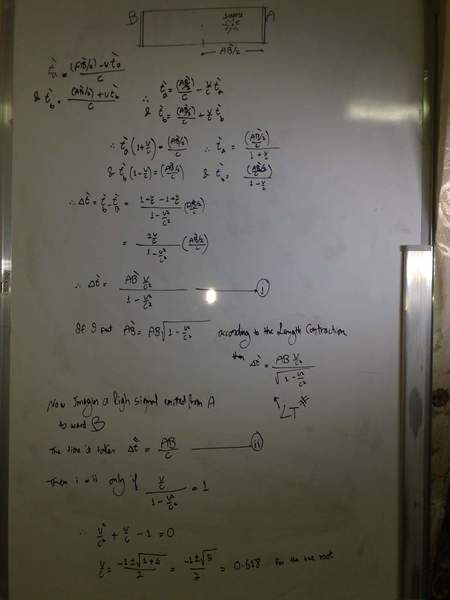 B SOURCE A
AB/2
t̀a = ((AB̀/2) - vt̀a)/c
& t̀b = ((AB̀/2) + vt̀b)/c
∴ t̀a = (AB̀/2)/c - v/c t̀a
& t̀b = (AB̀/2)/c + v/c t̀b
∴ t̀a (1 + v/c) = (AB̀/2)/c ∴ t̀a = ((AB̀/2)/c)/(1 + v/c)
& t̀b (1 - v/c) = (AB̀/2)/c & t̀b = ((AB̀/2)/c)/(1 - v/c)
∴ Δt̀ = t̀b - t̀a = (1 + v/c - 1 + v/c)/(1 - v²/c²) ((AB̀/2)/c)
= (2v/c)/(1 - v²/c²) ((AB̀/2)/c)
∴ Δt̀ = (AB̀ v/c²)/(1 - v²/c²) — i
If I put AB̀ = AB√(1 - v²/c²) according to the Length Contraction
then Δt̀ = (AB v/c²)/√(1 - v²/c²)
LT #
Now Imagin a ligh signal emited from A
to ward B
The time is taken Δt̀ = AB̀/c — ii
Then i = ii only if (v/c)/(1 - v²/c²) = 1
∴ v²/c² + v/c - 1 = 0
v/c = (-1 ± √(1+4))/2 = (-1 ± √5)/2 = 0.618 for the +ve root